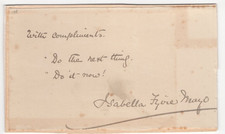 With compliments.
"Do the next thing.
Do it now!
Isabella Fyvie Mayo